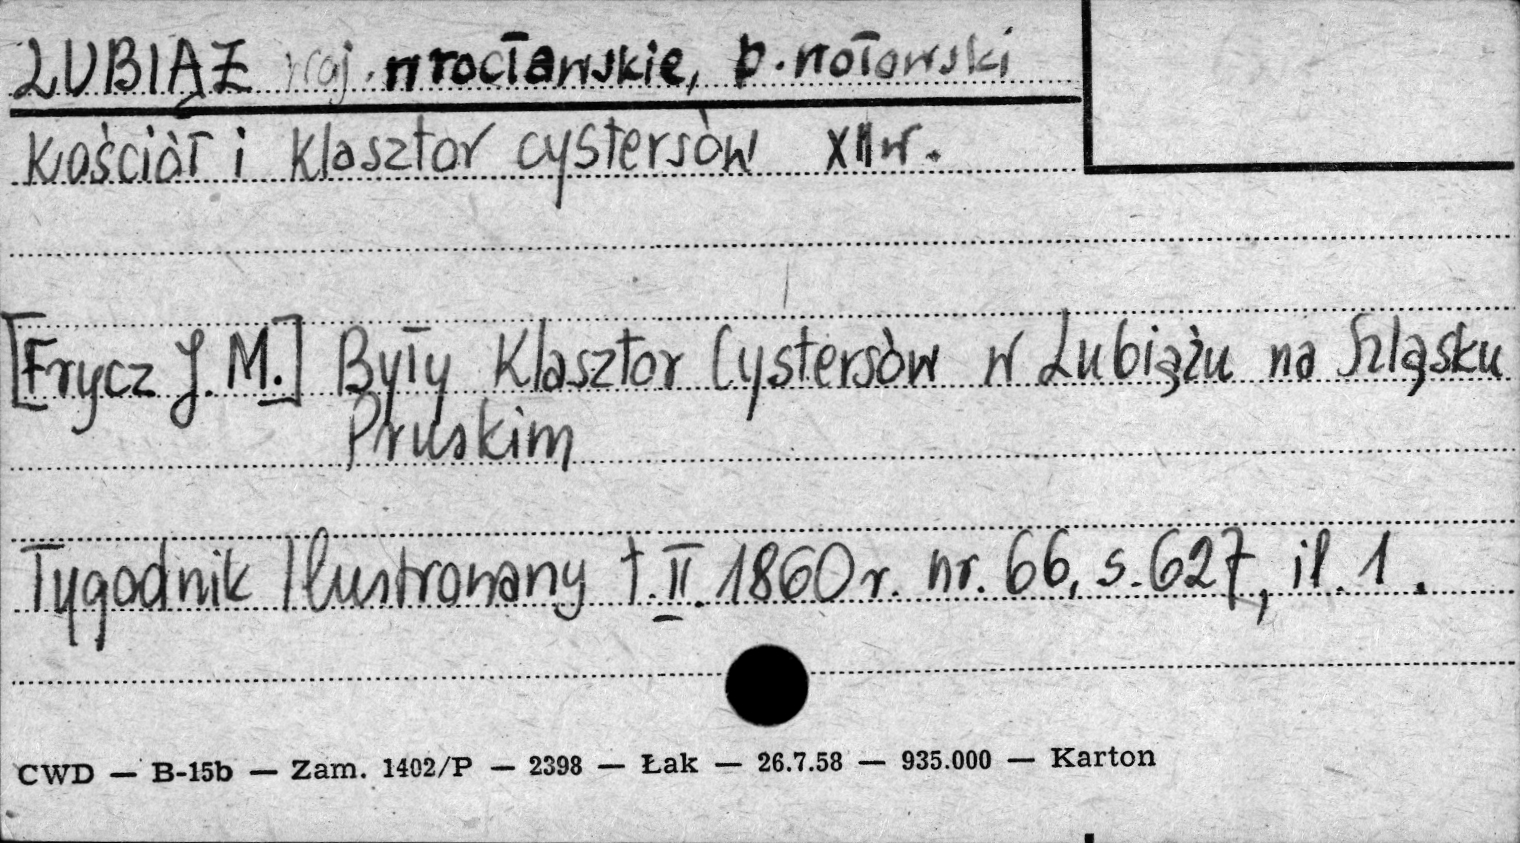 LUBIĄŻ woj. wrocławskie, p. wołowski
Kościół i klasztor cystersów XII w.
[Frycz J. M.] Były Klasztor Cystersów w Lubiążu na Szląsku
Pruskim
Tygodnik Ilustrowany t. II. 1860 r. nr. 66, s. 627, il. 1.
CWD — B-15b — Zam. 1402/P — 2398 — Łak — 26.7.58 — 935.000 — Karton